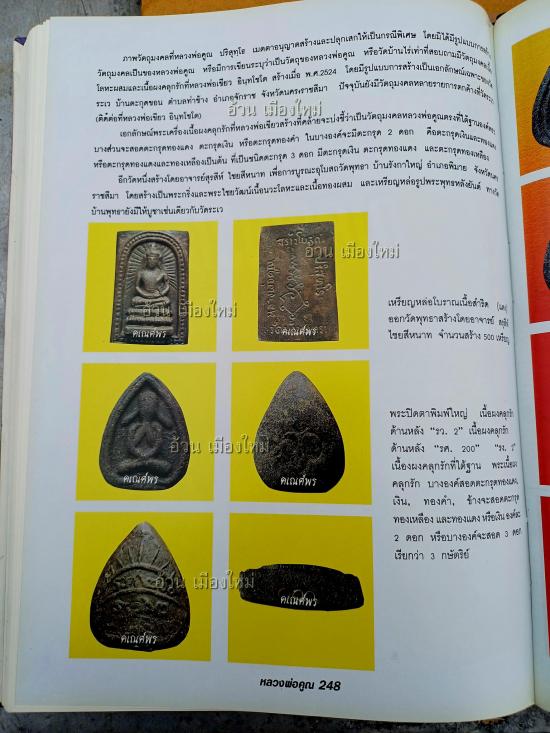 ภาพวัตถุมงคลที่หลวงพ่อคูณ ปริสุทฺโธ เมตตาอนุญาตสร้างและปลุกเสกให้เป็นกรณีพิเศษ โดยมิได้มีรูปแบบการสร้าง
วัตถุมงคลเป็นของหลวงพ่อคูณ หรือมีการเขียนระบุว่าเป็นวัตถุของหลวงพ่อคูณ หรือวัดบ้านไร่เท่าที่สอบถามมีวัตถุมงคลเนื้อ
โลหะผสมและเนื้อผงคลุกรักที่หลวงพ่อเขียว อินฺทโชโต สร้างเมื่อ พ.ศ.2524 โดยมีรูปแบบการสร้างเป็นเอกลักษณ์เฉพาะของวัด
ระเว บ้านตะกุดขอน ตำบลท่าช้าง อำเภอจักราช จังหวัดนครราชสีมา ปัจจุบันยังมีวัตถุมงคลหลายรายการตกค้างที่วัดระเว
(ติดต่อที่หลวงพ่อเขียว อินฺทโชโต)
เอกลักษณ์พระเครื่องเนื้อผงคลุกรักที่หลวงพ่อเขียวสร้างที่คล้ายจะบ่งชี้ว่าเป็นวัตถุมงคลหลวงพ่อคูณตรงที่ใต้ฐานองค์พระ
บางส่วนจะสอดตะกรุดทองแดง ตะกรุดเงิน หรือตะกรุดทองคำ ในบางองค์จะมีตะกรุด 2 ดอก คือตะกรุดเงินและทองแดง
หรือตะกรุดทองแดงและทองเหลืองเป็นต้น ที่เป็นชนิดตะกรุด 3 ดอก มีตะกรุดเงิน ตะกรุดทองแดง และตะกรุดทองเหลือง
อีกวัดหนึ่งสร้างโดยอาจารย์สุรสีห์ ไชยสีหนาท เพื่อการบูรณะอุโบสถวัดพุทธา บ้านรังกาใหญ่ อำเภอพิมาย จังหวัดนคร
ราชสีมา โดยสร้างเป็นพระกริ่งและพระไชยวัฒน์เนื้อนวะโลหะและเนื้อทองผสม และเหรียญหล่อรูปพระพุทธหลังยันต์ ทางวัด
บ้านพุทธายังมีให้บูชาเช่นเดียวกับวัดระเว
อ้วน เมืองใหม่
คเณศ์พร
เหรียญหล่อโบราณเนื้อสำริด (แดง)
ออกวัดพุทธาสร้างโดยอาจารย์ สุรสีห์
ไชยสีหนาท จำนวนสร้าง 500 เหรียญ
อ้วน เมืองใหม่
คเณศ์พร
คเณศ์พร
คเณศ์พร
พระปิดตาพิมพ์ใหญ่ เนื้อผงคลุกรัก
ด้านหลัง "รว. 2" เนื้อผงคลุกรัก
ด้านหลัง "รศ. 200" "รง. 1"
เนื้อผงคลุกรักที่ใต้ฐาน พระเนื้อผง
คลุกรัก บางองค์สอดตะกรุดทองแดง,
เงิน, ทองคำ, ข้างจะสอดตะกรุด
ทองเหลือง และทองแดง หรือเงิน องค์ละ
2 ดอก หรือบางองค์จะสอด 3 ดอก
เรียกว่า 3 กษัตริย์
อ้วน เมืองใหม่
คเณศ์พร
คเณศ์พร
หลวงพ่อคูณ 248